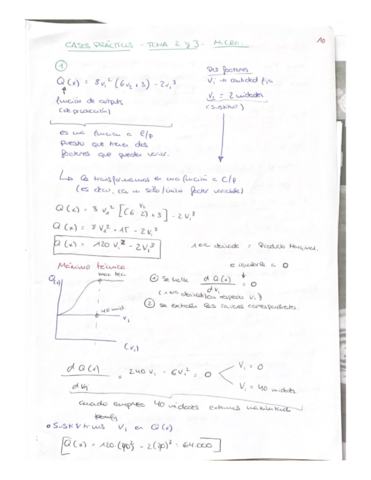 CASOS PRÁCTICOS - TEMA 2 y 3 - MICRO
10
①
Q(x) = 8v₁² (6v₂ + 3) - 2v₁³
función de output
(de producción)
Dos factores
v₁ → cantidad fija
v₂ = 2 unidades
(sustituir)
es una función a l/p
puesto que tienes dos
factores que pueden variar.
↳ la transformamos en una función a c/p
(es decir, con solo/único factor variable)
Q(x) = 8 v₁² [(6·2)+3] - 2v₁³
Q(x) = 8 v₁² · 15 - 2v₁³
Q(x) = 120 v₁² - 2v₁³
1era derivada = Producto Marginal
e igualarla a 0
Máximo técnico
Q(x)
max tec.
40 unid
v₁
(v₁)
① se halla d Q(x) / dv₁ = 0
(1era derivada respecto v₁)
② se extraen las raíces correspondientes.
d Q(x) / dv₁ = 240 v₁ - 6v₁² = 0
v₁ = 0
v₁ = 40 unidades
cuando emplees 40 unidades estarás maximizando
• Sustituimos v₁ en Q(x)
Q(x) = 120·(40)² - 2(40)³ = 64.000